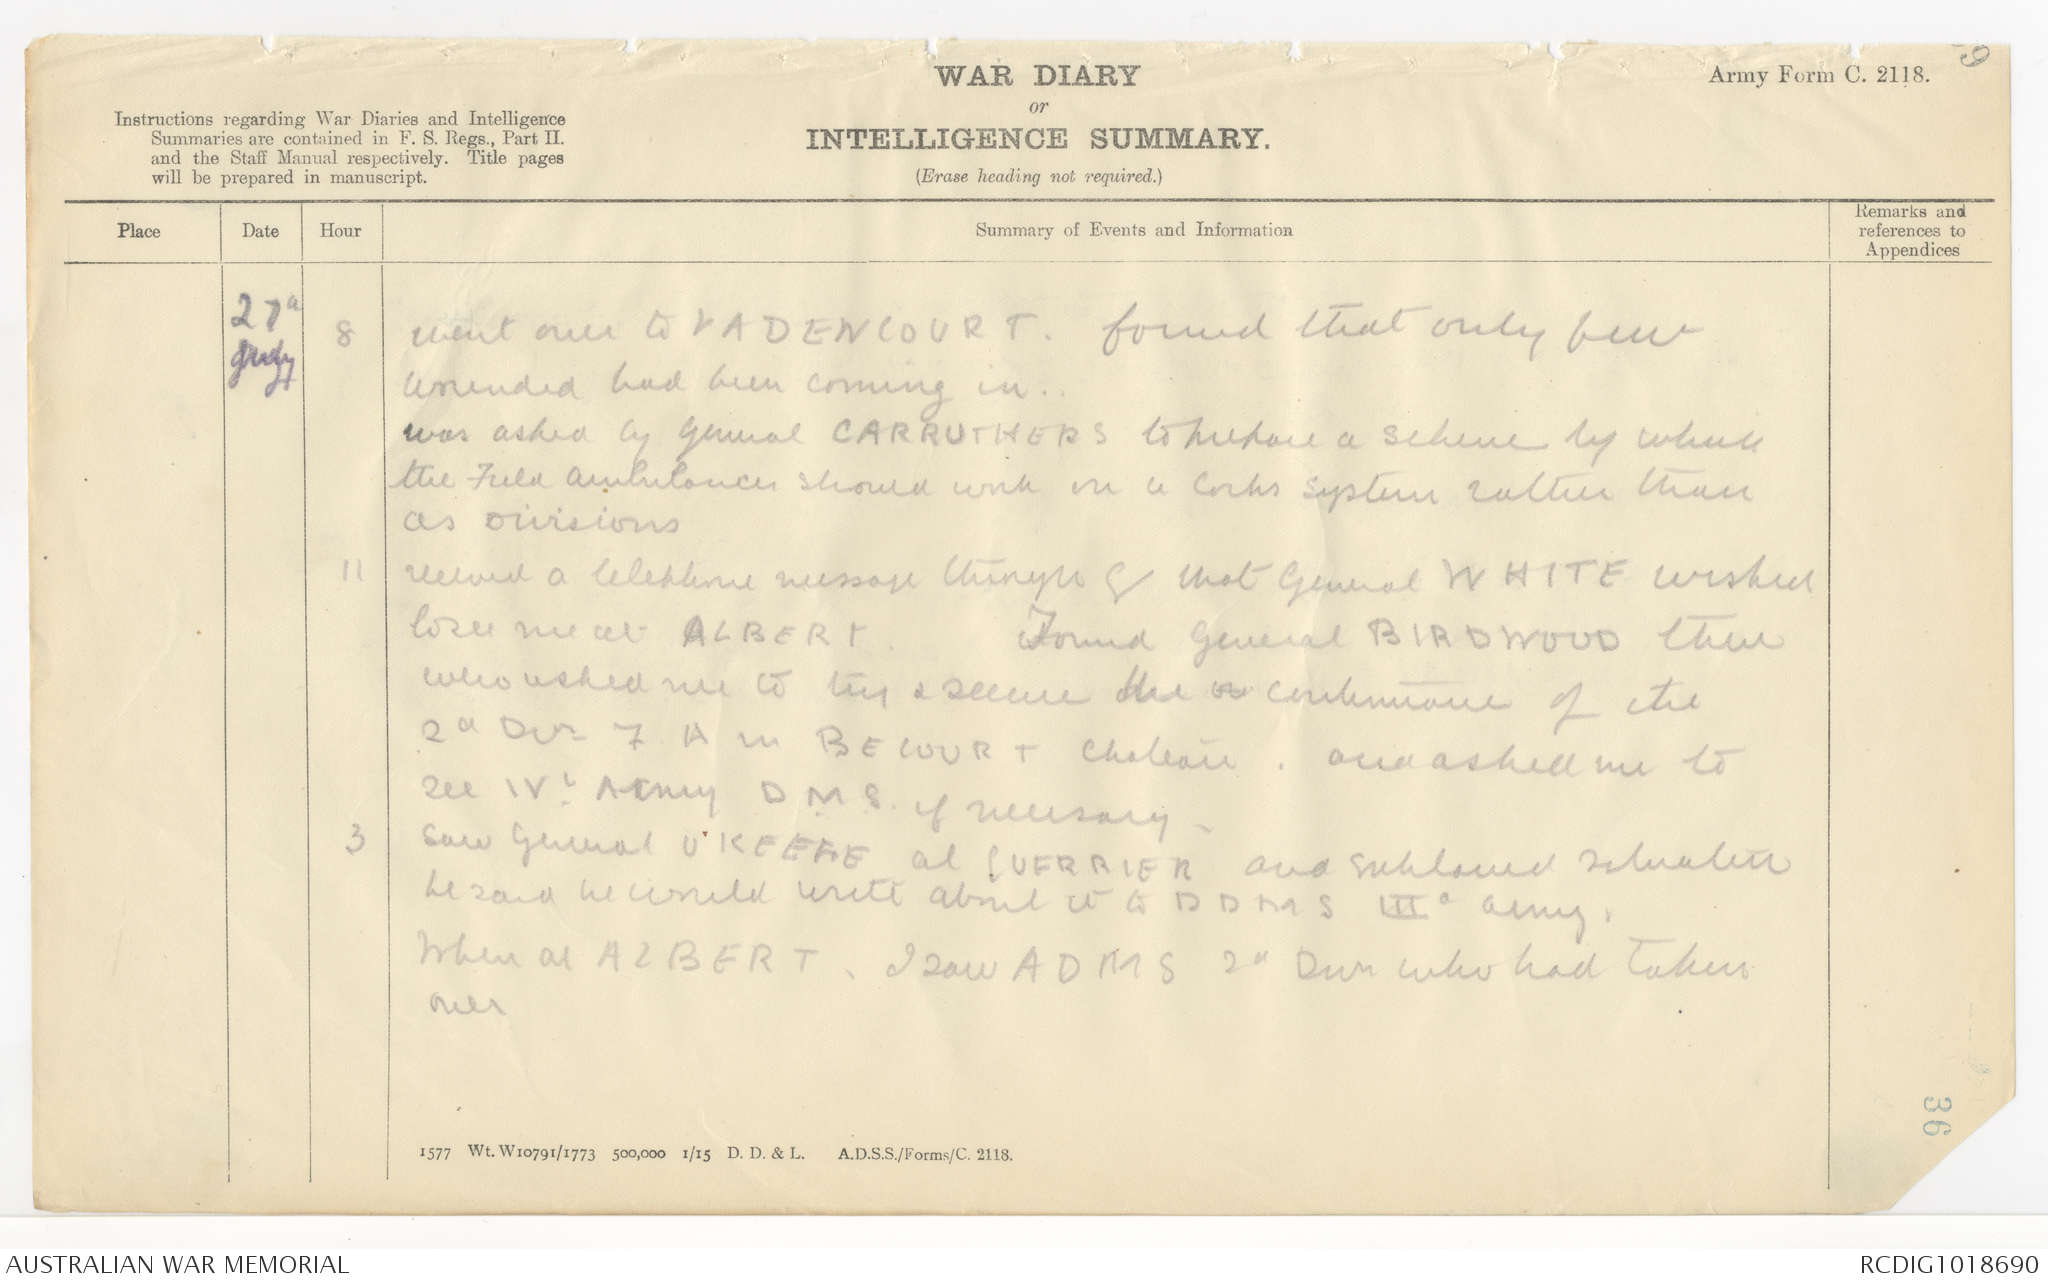 WAR DIARY
or
INTELLIGENCE SUMMARY.
(Erase heading not required.)
Army Form C. 2118.
Instructions regarding War Diaries and Intelligence
Summaries are contained in F. S. Regs., Part II.
and the Staff Manual respectively. Title pages
will be prepared in manuscript.
Place
Date
Hour
Summary of Events and Information
Remarks and
references to
Appendices
27th
July
8 went over to VADENCOURT. found that only few
wounded had been coming in.
was asked by General CARRUTHERS to prepare a scheme by which
the Field Ambulances should work on a Corps system rather than
as Divisions
11 received a telephone message through G that General WHITE wished
to see me at ALBERT. Found General BIRDWOOD there
who asked me to try & secure the continuance of the
2d Divn F A in BECOURT Chateau. and asked me to
see IVth Army D M S. if necessary
3 Saw General O'KEEFFE at QUERRIER and explained situation
he said he would write about it to D D M S III army.
When at ALBERT. I saw A D M S 2d Divn who had taken
over
1577 Wt. W10791/1773 500,000 1/15 D. D. & L. A.D.S.S./Forms/C. 2118.
36
AUSTRALIAN WAR MEMORIAL
RCDIG1018690